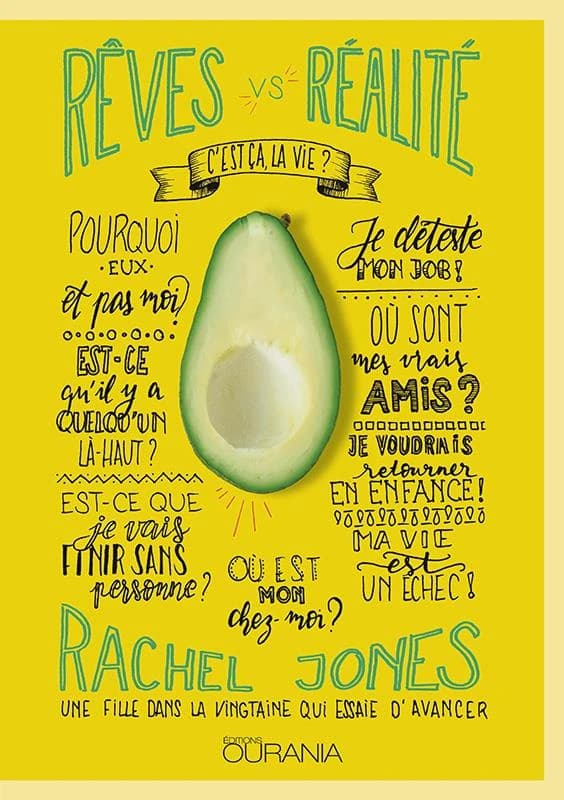 RÊVES VS RÉALITÉ
C'EST ÇA, LA VIE ?
POURQUOI
·EUX·
et pas moi?
EST-CE
qu'il y a
QUELQU'UN
LÀ-HAUT ?
EST-CE QUE
je vais
FINIR SANS
personne ?
Je déteste
MON JOB !
OÙ SONT
mes vrais
AMIS ?
JE VOUDRAIS
retourner
EN ENFANCE !
MA VIE
est
UN ÉCHEC !
OÙ EST
MON
chez-moi ?
RACHEL JONES
UNE FILLE DANS LA VINGTAINE QUI ESSAIE D'AVANCER
ÉDITIONS
OURANIA